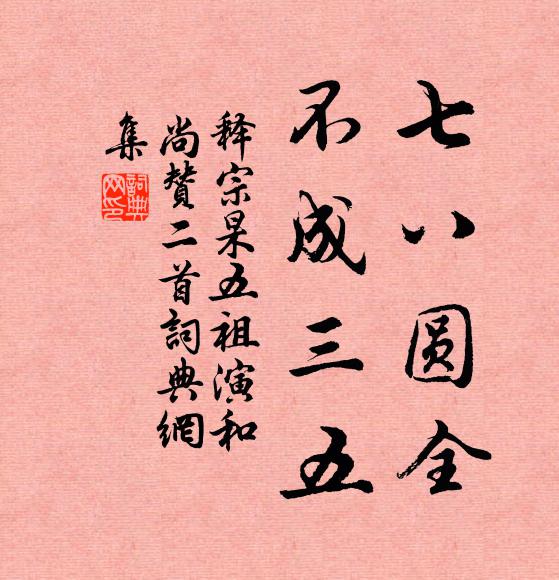 七八圆全
不成三五
释宗杲五祖演和
尚赞二首詞典網
集
詞典网印